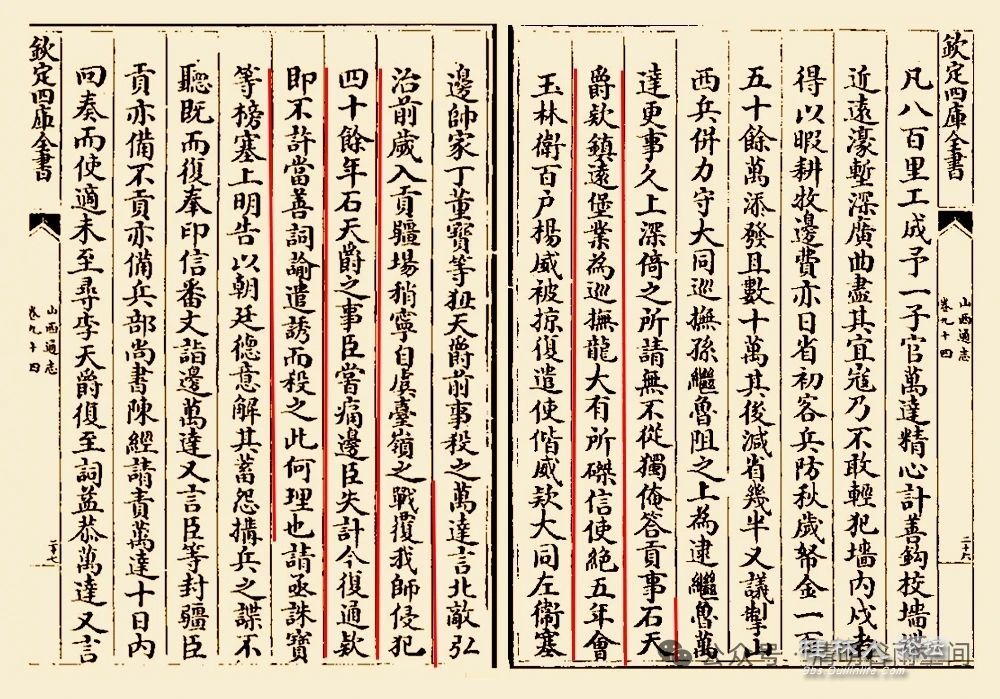 欽定四庫全書
山西通志
卷九十四
二十六
凡八百里工成予一子官萬達精心計善鈎校墻堞
近遠濠塹深廣曲盡其宜寇乃不敢輕犯墻内戍者
得以暇耕牧邊費亦日省初客兵防秋歲帑金一百
五十餘萬添發且數十萬其後減省幾半又議掣山
西兵併力守大同巡撫孫繼魯阻之上為逮繼魯萬
達更事久上深倚之所請無不從獨俺答貢事石天
爵欵鎮遠堡業為巡撫龍大有所磔信使絕五年會
玉林衛百户楊威被掠復遣使偕威欵大同左衛塞
邊帥家丁董寳等狃天爵前事殺之萬達言北敵弘
治前歲入貢疆場稍寧自虞臺嶺之戰覆我師侵犯
四十餘年石天爵之事臣嘗痛邊臣失計今復通欵
即不許當善詞諭遣誘而殺之此何理也請亟誅寳
等榜塞上明告以朝廷德意解其蓄怨搆兵之諜不
聽既而復奉印信番文詣邊萬達又言臣等封疆臣
貢亦備不貢亦備兵部尚書陳經請責萬達十日内
回奏而使適未至尋李天爵復至詞益恭萬達又言
欽定四庫全書
山西通志
卷九十四
二十七
公众号
空间
桂林人论坛
bbs.Guilinlife.com